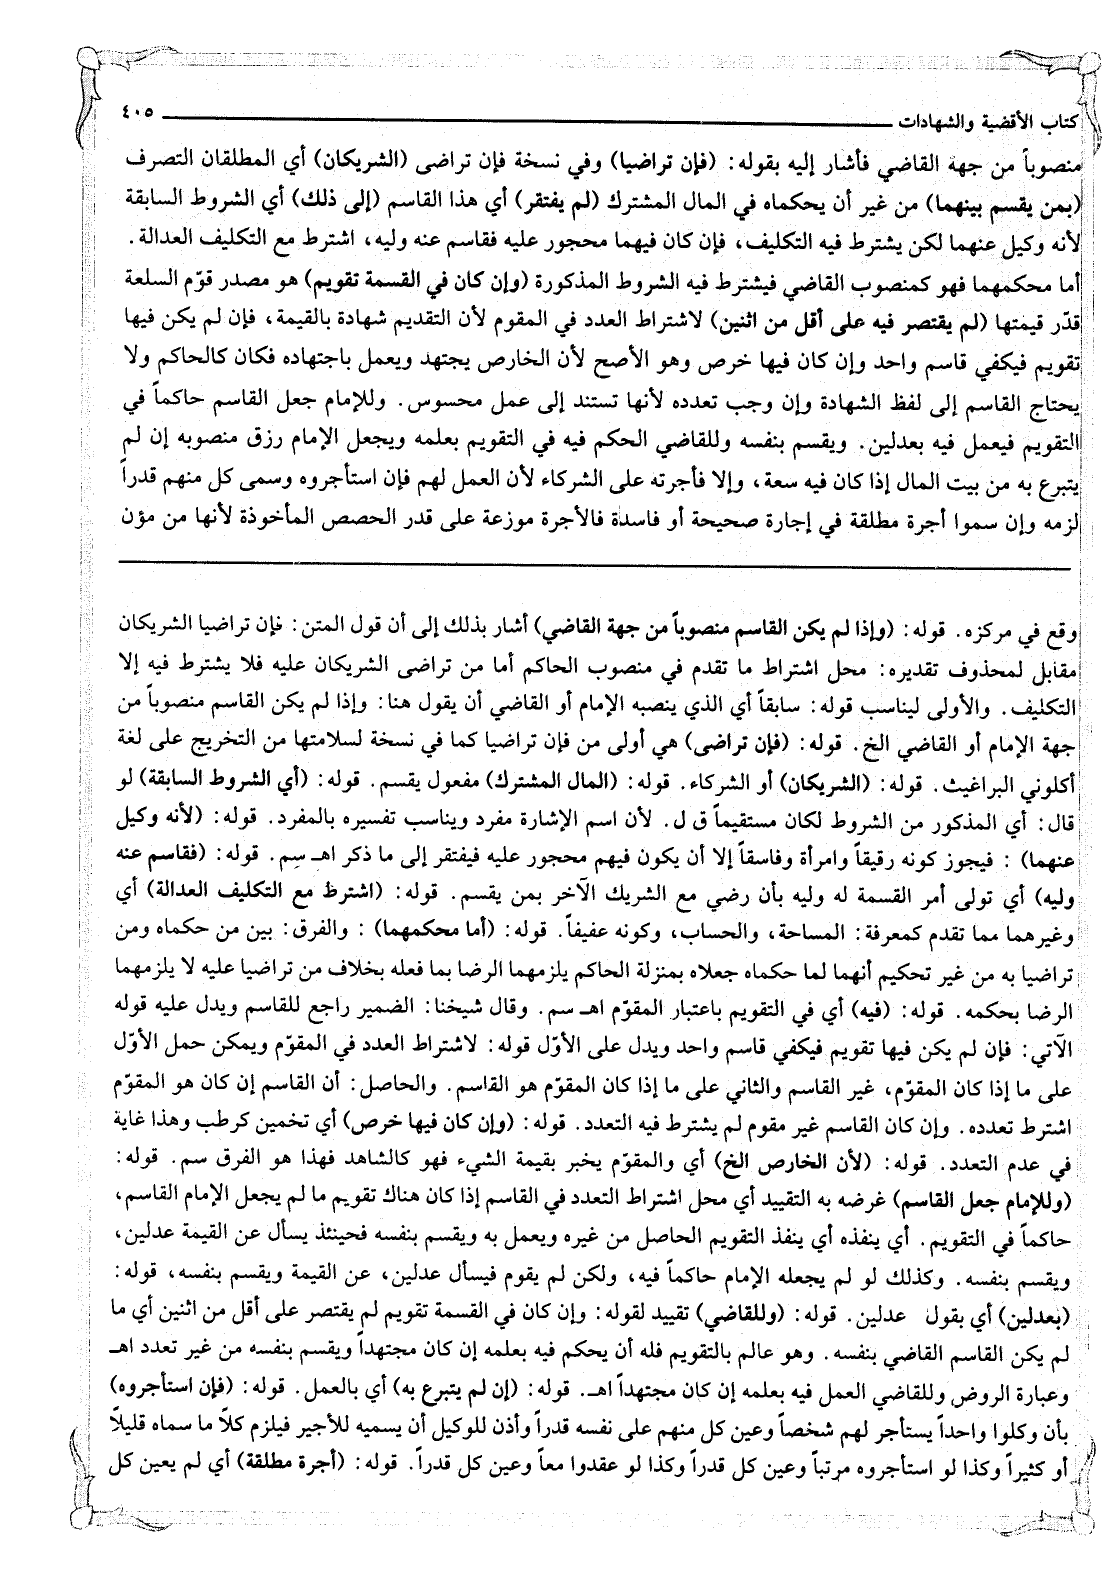 كتاب الأقضية والشهادات ٤٠٥
منصوباً من جهة القاضي فأشار إليه بقوله: (فإن تراضيا) وفي نسخة فإن تراضى (الشريكان) أي المطلقان التصرف
(بمن يقسم بينهما) من غير أن يحكماه في المال المشترك (لم يفتقر) أي هذا القاسم (إلى ذلك) أي الشروط السابقة
لأنه وكيل عنهما لكن يشترط فيه التكليف، فإن كان فيهما محجور عليه فقاسم عنه وليه، اشترط مع التكليف العدالة.
أما محكمهما فهو كمنصوب القاضي فيشترط فيه الشروط المذكورة (وإن كان في القسمة تقويم) هو مصدر قوّم السلعة
قدّر قيمتها (لم يقتصر فيه على أقل من اثنين) لاشتراط العدد في المقوم لأن التقديم شهادة بالقيمة، فإن لم يكن فيها
تقويم فيكفي قاسم واحد وإن كان فيها خرص وهو الأصح لأن الخارص يجتهد ويعمل باجتهاده فكان كالحاكم ولا
يحتاج القاسم إلى لفظ الشهادة وإن وجب تعدده لأنها تستند إلى عمل محسوس. وللإمام جعل القاسم حاكماً في
التقويم فيعمل فيه بعدلين. ويقسم بنفسه وللقاضي الحكم فيه في التقويم بعلمه ويجعل الإمام رزق منصوبه إن لم
يتبرع به من بيت المال إذا كان فيه سعة، وإلا فأجرته على الشركاء لأن العمل لهم فإن استأجروه وسمى كل منهم قدراً
لزمه وإن سموا أجرة مطلقة في إجارة صحيحة أو فاسدة فالأجرة موزعة على قدر الحصص المأخوذة لأنها من مؤن
وقع في مركزه. قوله: (وإذا لم يكن القاسم منصوباً من جهة القاضي) أشار بذلك إلى أن قول المتن: فإن تراضيا الشريكان
مقابل لمحذوف تقديره: محل اشتراط ما تقدم في منصوب الحاكم أما من تراضى الشريكان عليه فلا يشترط فيه إلا
التكليف. والأولى ليناسب قوله: سابقاً أي الذي ينصبه الإمام أو القاضي أن يقول هنا: وإذا لم يكن القاسم منصوباً من
جهة الإمام أو القاضي الخ. قوله: (فإن تراضى) هي أولى من فإن تراضيا كما في نسخة لسلامتها من التخريج على لغة
أكلوني البراغيث. قوله: (الشريكان) أو الشركاء. قوله: (المال المشترك) مفعول يقسم. قوله: (أي الشروط السابقة) لو
قال: أي المذكور من الشروط لكان مستقيماً ق ل. لأن اسم الإشارة مفرد ويناسب تفسيره بالمفرد. قوله: (لأنه وكيل
عنهما) : فيجوز كونه رقيقاً وامرأة وفاسقاً إلا أن يكون فيهم محجور عليه فيفتقر إلى ما ذكر اهـ سِم. قوله: (فقاسم عنه
وليه) أي تولى أمر القسمة له وليه بأن رضي مع الشريك الآخر بمن يقسم. قوله: (اشترط مع التكليف العدالة) أي
وغيرهما مما تقدم كمعرفة: المساحة، والحساب، وكونه عفيفاً. قوله: (أما محكمهما) : والفرق: بين من حكماه ومن
تراضيا به من غير تحكيم أنهما لما حكماه جعلاه بمنزلة الحاكم يلزمهما الرضا بما فعله بخلاف من تراضيا عليه لا يلزمهما
الرضا بحكمه. قوله: (فيه) أي في التقويم باعتبار المقوّم اهـ سم. وقال شيخنا: الضمير راجع للقاسم ويدل عليه قوله
الآتي: فإن لم يكن فيها تقويم فيكفي قاسم واحد ويدل على الأوّل قوله: لاشتراط العدد في المقوّم ويمكن حمل الأوّل
على ما إذا كان المقوّم، غير القاسم والثاني على ما إذا كان المقوّم هو القاسم. والحاصل: أن القاسم إن كان هو المقوّم
اشترط تعدده. وإن كان القاسم غير مقوم لم يشترط فيه التعدد. قوله: (وإن كان فيها خرص) أي تخمين كرطب وهذا غاية
في عدم التعدد. قوله: (لأن الخارص الخ) أي والمقوّم يخبر بقيمة الشيء فهو كالشاهد فهذا هو الفرق سم. قوله:
(وللإمام جعل القاسم) غرضه به التقييد أي محل اشتراط التعدد في القاسم إذا كان هناك تقويم ما لم يجعل الإمام القاسم،
حاكماً في التقويم. أي ينفذه أي ينفذ التقويم الحاصل من غيره ويعمل به ويقسم بنفسه فحينئذ يسأل عن القيمة عدلين،
ويقسم بنفسه. وكذلك لو لم يجعله الإمام حاكماً فيه، ولكن لم يقوم فيسأل عدلين، عن القيمة ويقسم بنفسه، قوله:
(بعدلين) أي بقول عدلين. قوله: (وللقاضي) تقييد لقوله: وإن كان في القسمة تقويم لم يقتصر على أقل من اثنين أي ما
لم يكن القاسم القاضي بنفسه. وهو عالم بالتقويم فله أن يحكم فيه بعلمه إن كان مجتهداً ويقسم بنفسه من غير تعدد اهـ
وعبارة الروض وللقاضي العمل فيه بعلمه إن كان مجتهداً اهـ. قوله: (إن لم يتبرع به) أي بالعمل. قوله: (فإن استأجروه)
بأن وكلوا واحداً يستأجر لهم شخصاً وعين كل منهم على نفسه قدراً وأذن للوكيل أن يسميه للأجير فيلزم كلاً ما سماه قليلاً
أو كثيراً وكذا لو استأجروه مرتباً وعين كل قدراً وكذا لو عقدوا معاً وعين كل قدراً. قوله: (أجرة مطلقة) أي لم يعين كل